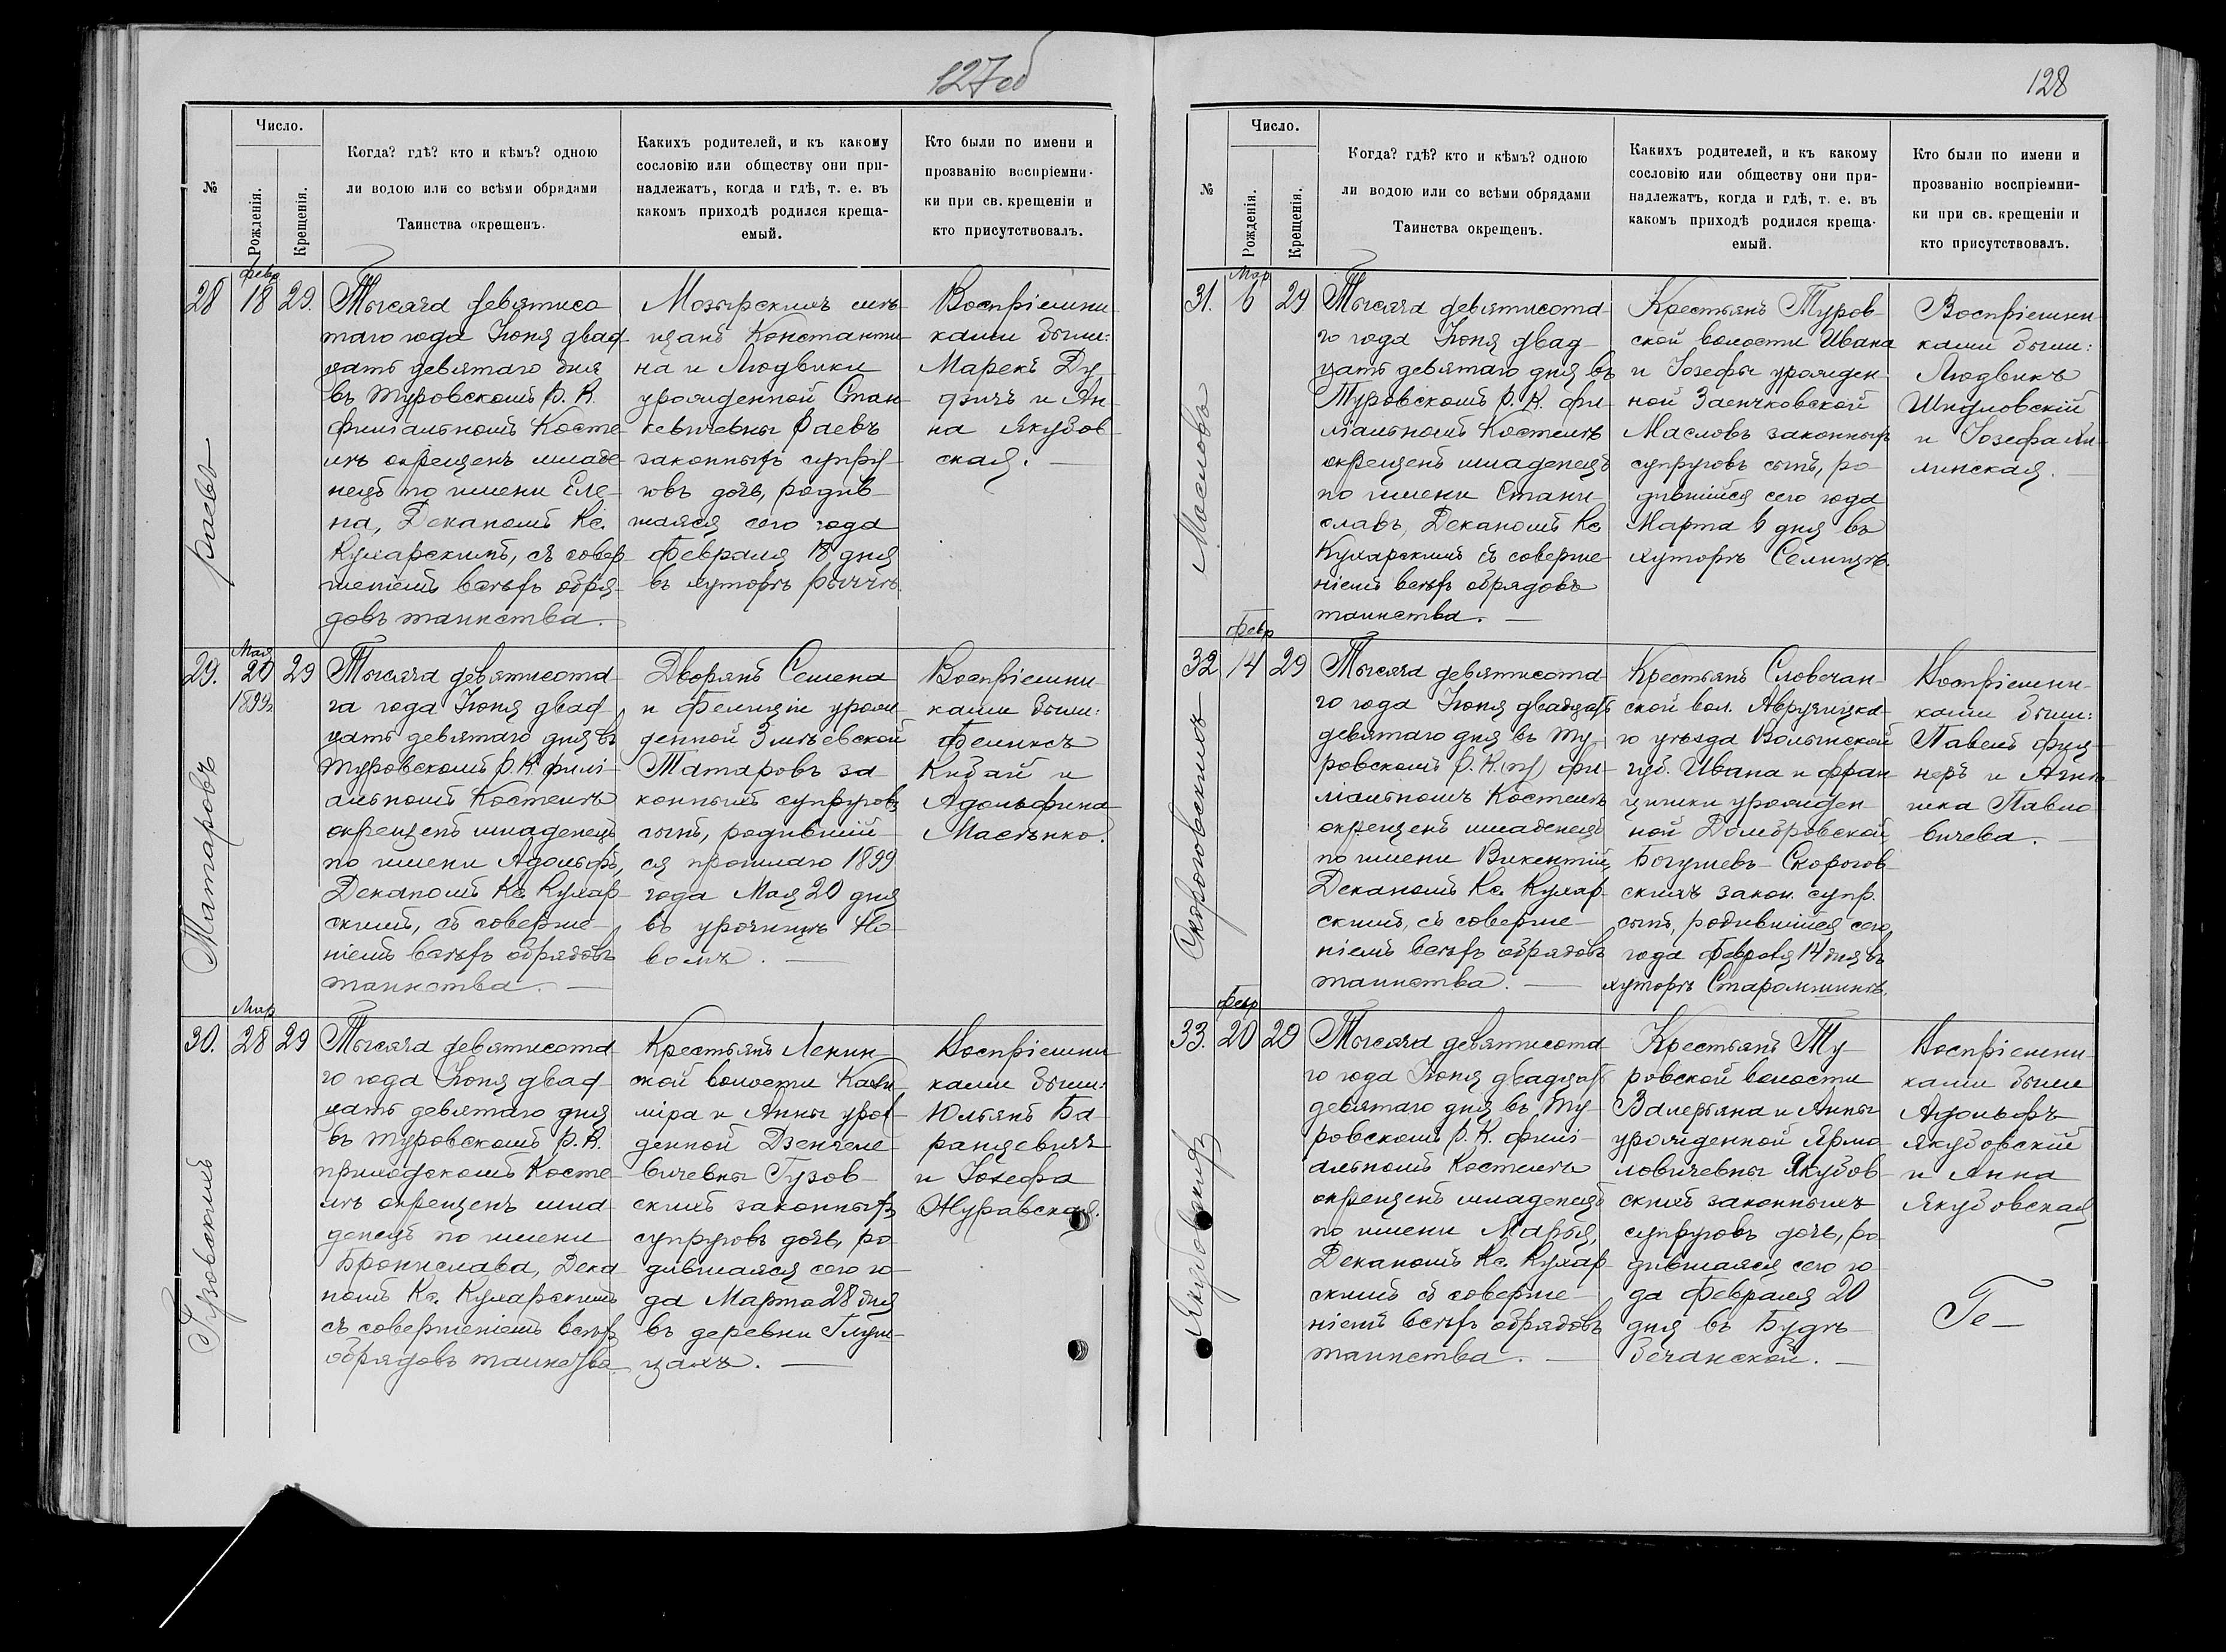 127об
№
Число.
Рожденія.
Крещенія.
Когда? гдѣ? кто и кѣмъ? одною
ли водою или со всѣми обрядами
Таинства окрещенъ.
Какихъ родителей, и къ какому
сословію или обществу они при-
надлежатъ, когда и гдѣ, т. е. въ
какомъ приходѣ родился креща-
емый.
Кто были по имени и
прозванію воспріемни-
ки при св. крещеніи и
кто присутствовалъ.
28
февр
18
29.
Раевъ
Тысяча девятисо
таго года Іюня двад
цать девятаго дня
въ Туровскомъ Р. К.
филіальномъ Косте
лѣ окрещенъ младе
нецъ по имени Еле-
на, Деканомъ Кс.
Кухарскимъ, съ совер
шеніемъ всѣхъ обря-
довъ таинства.
Мозырскихъ мѣ-
щанъ Константи
на и Людвики
урожденной Стан
кевичевны Раевъ
законныхъ супру-
говъ дочь, родив-
шаяся сего года
Февраля 18 дня
въ хуторѣ
Воспріемни
ками были:
Марекъ Ду-
дзичъ и Ан-
на Якубов
ская.
29.
Мая
20
1899г.
29
Татаровъ
Тысяча девятисота
га года Іюня двад
цать девятаго дня въ
Туровскомъ Р. К. филі-
альномъ Костелѣ
окрещенъ младенецъ
по имени Адольфъ,
Деканомъ Кс. Кухар
скимъ, съ соверше-
ніемъ всѣхъ обрядовъ
таинства.
Дворянъ Семена
и Фелиціи урож
денной Змѣевской
Татаровъ за-
конныхъ супруговъ
сынъ, родившій-
ся прошлаго 1899
года Мая 20 дня
въ урочищѣ
Воспріемни-
ками были:
Феликсъ
Кибай и
Адольфина
Масѣнко.
30.
Мар
28
29
Гузовскихъ
Тысяча девятисота
го года Іюня двад
цать девятаго дня
въ Туровскомъ Р. К.
приходскомъ Косте
лѣ окрещенъ мла
денецъ по имени
Брониславa, Дека
номъ Кс. Кухарскимъ
съ совершеніемъ всѣхъ
обрядовъ таинства.
Крестьянъ Ленин-
ской волости Кази
міра и Анны урож
денной
бичевны Гузов-
скихъ законныхъ
супруговъ дочь, ро
дившаяся сего го-
да Марта 28 дня
въ деревни Глуш-
цахъ.
Воспріемни
ками были:
Юльянъ Ба
ранцевичъ
и Іозефа
Журавская.
128
№
Число.
Рожденія.
Крещенія.
Когда? гдѣ? кто и кѣмъ? одною
ли водою или со всѣми обрядами
Таинства окрещенъ.
Какихъ родителей, и къ какому
сословію или обществу они при-
надлежатъ, когда и гдѣ, т. е. въ
какомъ приходѣ родился креща-
емый.
Кто были по имени и
прозванію воспріемни-
ки при св. крещеніи и
кто присутствовалъ.
31.
Мар
6
29.
Масловъ
Тысяча девятисота-
го года Іюня двад-
цать девятаго дня въ
Туровскомъ Р. К. фи-
ліальномъ Костелѣ
окрещенъ младенецъ
по имени Стани-
славъ, Деканомъ Кс.
Кухарскимъ съ соверше-
ніемъ всѣхъ обрядовъ
таинства.
Крестьянъ Туров-
ской волости Ивана
и Іозефы урожден-
ной Заенчковской
Масловъ законныхъ
супруговъ сынъ, ро-
дившійся сего года
Марта 6 дня въ
хуторѣ Селищѣ.
Воспріемни
ками были:
Людвикъ
Шидловскій
и Іозефа
линская.
32
Февр
14
29
Скороговскихъ
Тысяча девятисота-
го года Іюня двадцать
девятаго дня въ Ту-
ровскомъ Р. К. фи-
ліальномъ Костелѣ
окрещенъ младенецъ
по имени Викентій,
Деканомъ Кс. Кухар-
скимъ, съ соверше-
ніемъ всѣхъ обрядовъ
таинства.
Крестьянъ Словечан-
ской вол. Авручцка-
го уѣзда Волынской
губ. Ивана и Фран
цишки урожден-
ной Домбровской,
Богушевъ-Скорогов
скихъ закон. супр.
сынъ, родившійся сего
года Февраля 14 дня въ
хуторѣ
Воспріемни-
ками были:
Павелъ
неръ и Агнѣ
шка Павло
вичева.
33.
Февр
20
29
Якубовскихъ
Тысяча девятисота
го года Іюня двадцать
девятаго дня въ Ту-
ровскомъ Р. К. филі-
альномъ Костелѣ
окрещенъ младенецъ
по имени Марья,
Деканомъ Кс. Кухар
скимъ съ соверше-
ніемъ всѣхъ обрядовъ
таинства.
Крестьянъ Ту-
ровской волости
Валерьяна и Анны
урожденной Ярмо
ловичевны Якубов
скихъ законныхъ
супруговъ дочь, ро
дившаяся сего го
да Февраля 20
дня въ Будѣ
Вечанской.
Воспріемни
ками были
Адольфъ
Якубовскій
и Анна
Якубовская
Ге